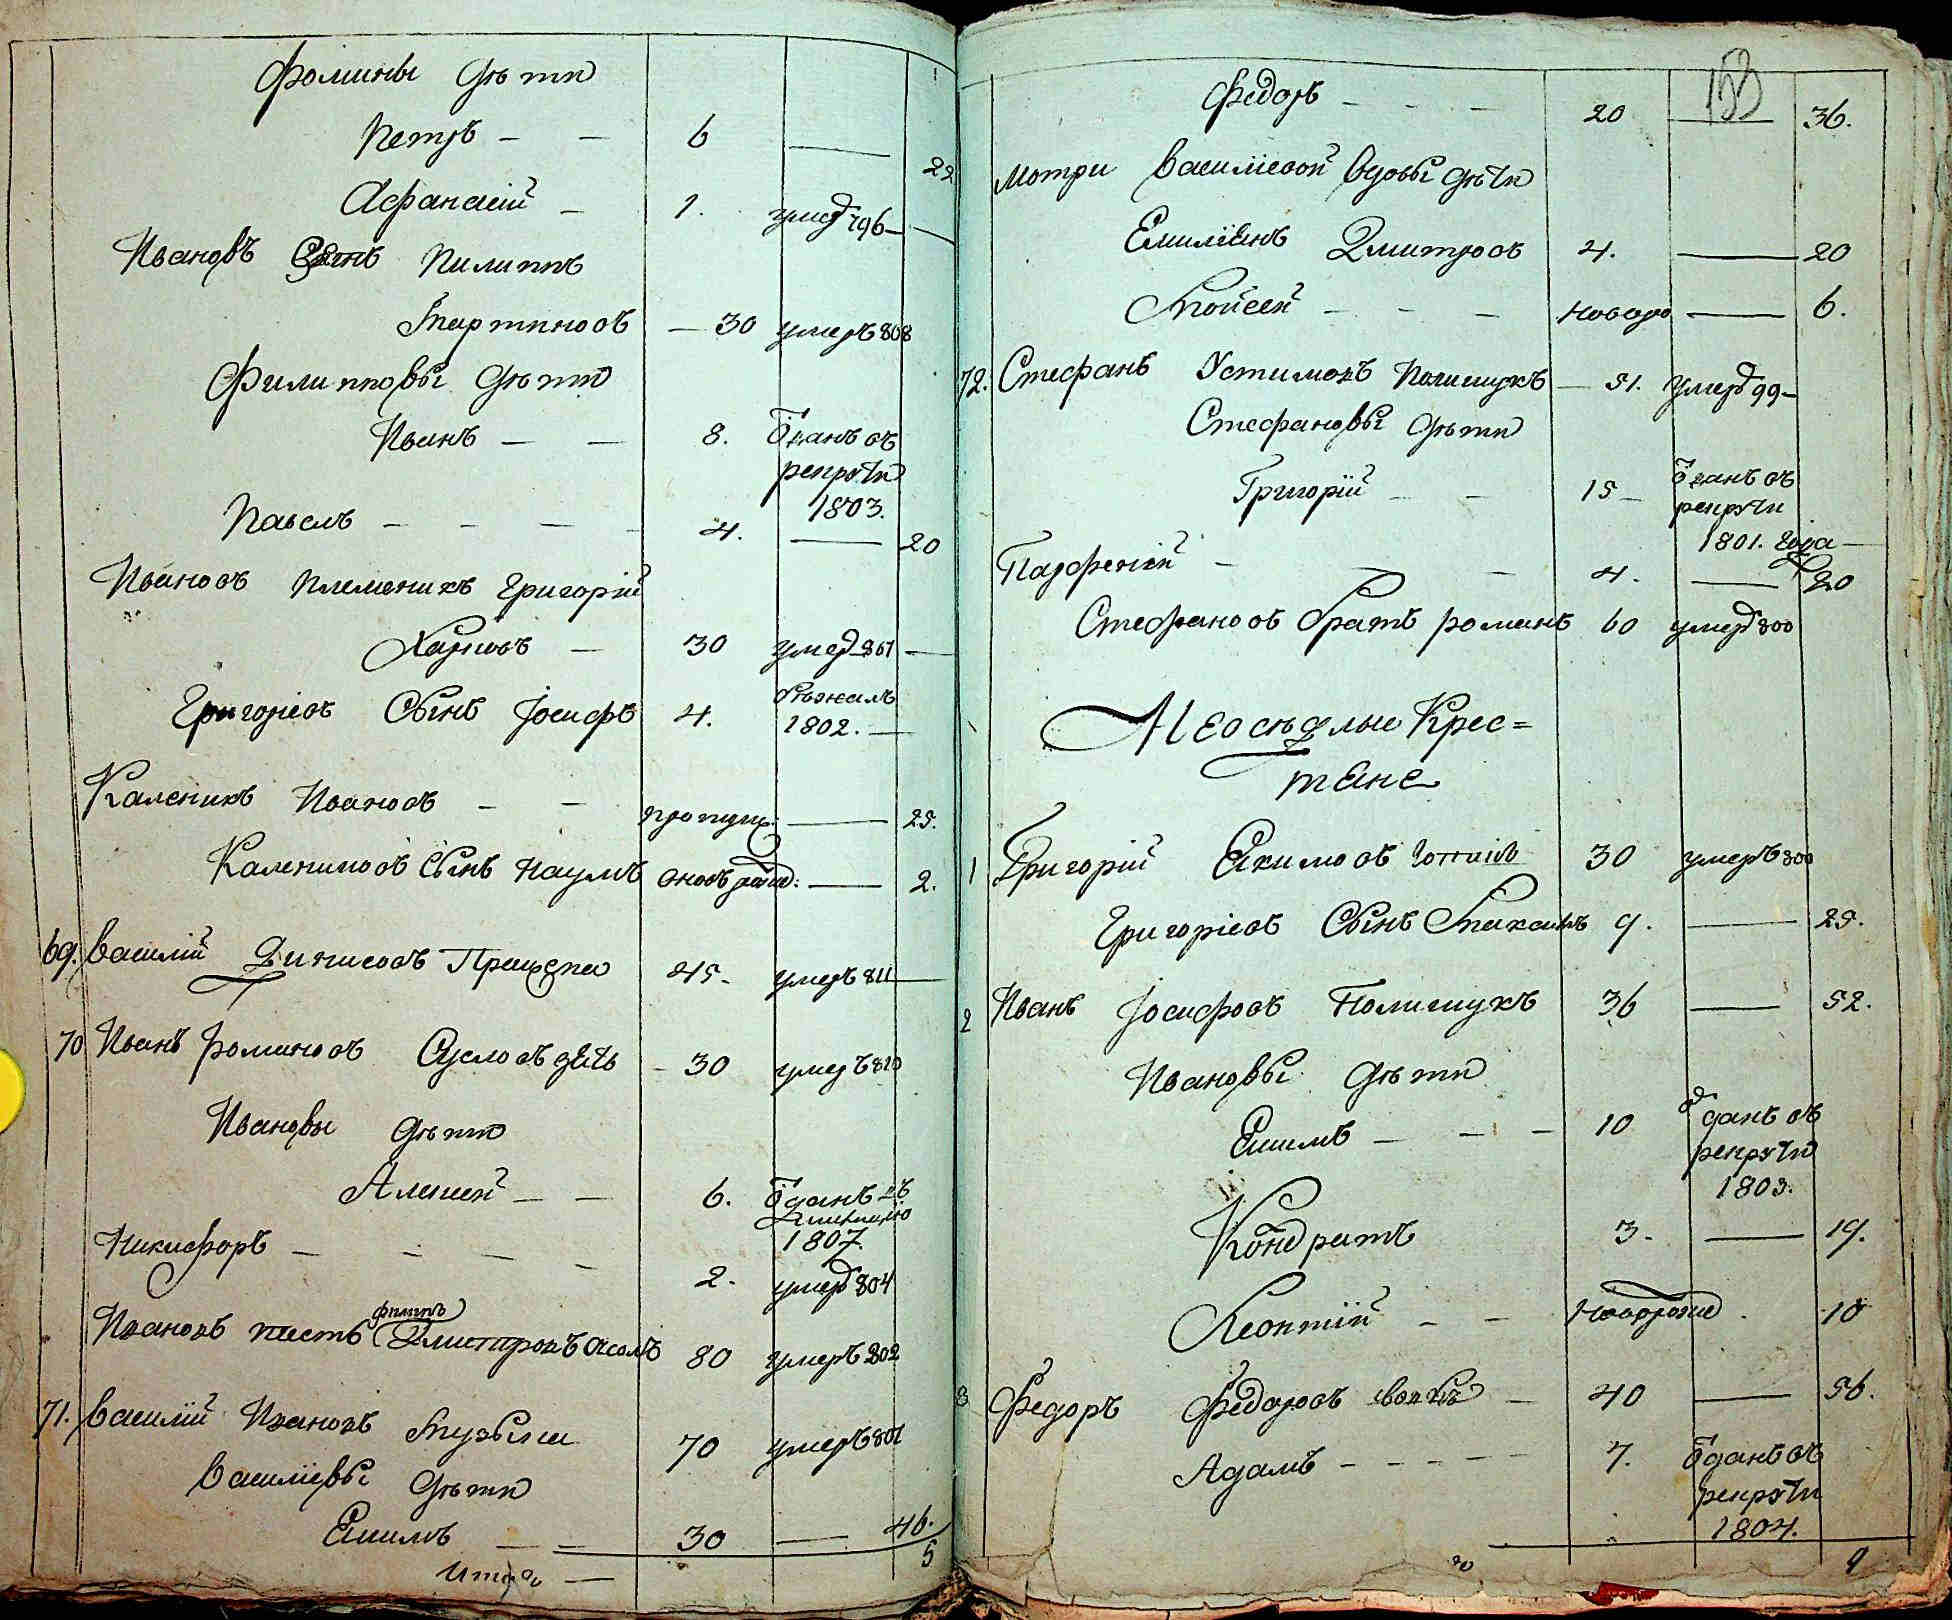 Фомины дѣти
Петръ — — 6 — 22
Афанасій — 1. умер 796 —
Ивановъ Сынъ Пилипъ
Мартиновъ — 30 умеръ 808
Филипповы дѣти
Иванъ — — 8. Ѿданъ въ
рекруты
1803.
Павелъ — — — — 4. — 20
Ивановъ племеникъ Григорій
Карповъ — 30 умер 807 —
Григоріевъ Сынъ Іосифъ 4. бѣжалъ
1802. —
Каленикъ Ивановъ — — пропущ: — 25.
Калениковъ Сынъ Наумъ вновь рожд: — 2.
69. Василій Денисовъ 45. умеръ 811 —
70 Иванъ Романовъ — 30 умеръ 810
Ивановы дѣти
Алексѣй — — 6. Ѿданъ въ
милицію
1807.
Никифоръ — — — — 2. умер 804
Ивановъ тесть Дмитровъ 80 умеръ 802
71. Василій Ивановъ Музыка 70 умеръ 807
Василіевы дѣти
Екимъ — — 30 — 46.
Итого — 5
153
Федоръ — — — 20 — 36.
Мотри Василіевой вдовы дѣти
Емиліянъ Дмитровъ 4. — 20
Мойсей — — — новоро — 6.
72. Стефанъ Устимовъ Полищукъ — 51. умер 99 —
Стефановы дѣти
Григорій — — 15 — Ѿданъ въ
рекруты
1801. года —
Парфеній — — — 4. — 20
Стефановъ братъ Романъ 60 умер 800
Неосѣдлые Крес=
тяне
1 Григорій Якимовъ 30 умеръ 800
Григоріевъ Сынъ Михаилъ 9. — 25.
2 Иванъ Іосифовъ Полищукъ 36 — 52.
Ивановы дѣти
Екимъ — — — 10 Ѿданъ въ
рекруты
1803.
Кондратъ 3. — 19.
Леонтій — — Новорожд . 10
3 Федоръ Федоровъ — 40 — 56.
Адамъ — — — — — 7. Ѿданъ въ
рекруты
1804.
9